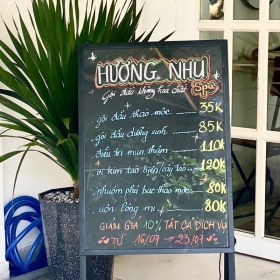 HƯƠNG NHU
Spa
Gội đầu không hóa chất
gội đầu thảo mộc 35K
gội đầu dưỡng sinh 85K
điều trị mụn, thâm 110K
vi kim tảo biển/cấy tảo 120K
nhuộm phủ bạc thảo mộc 80K
uốn lông mi 80K
GIẢM GIÁ 10% TẤT CẢ DỊCH VỤ
TỪ 16/07 → 23/07